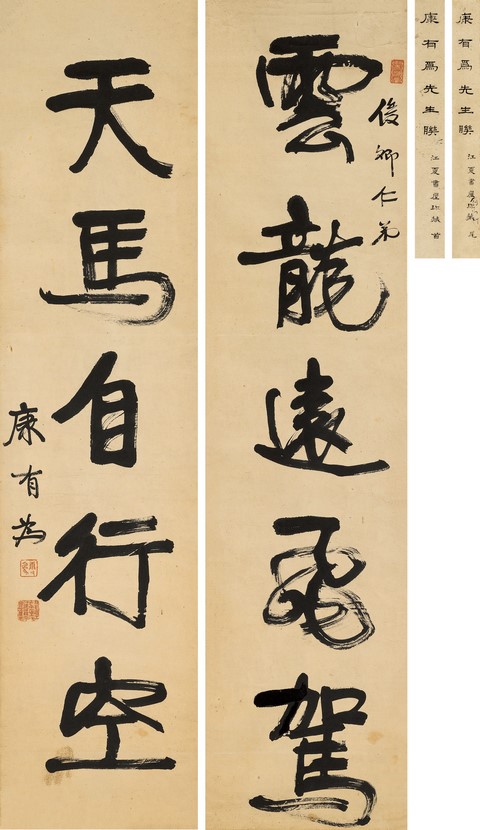 康有爲先生聯
江夏書屋珍藏
康有爲先生聯
江夏書屋珍藏
俊卿仁弟
雲龍遠飛駕
天馬自行空
康有為